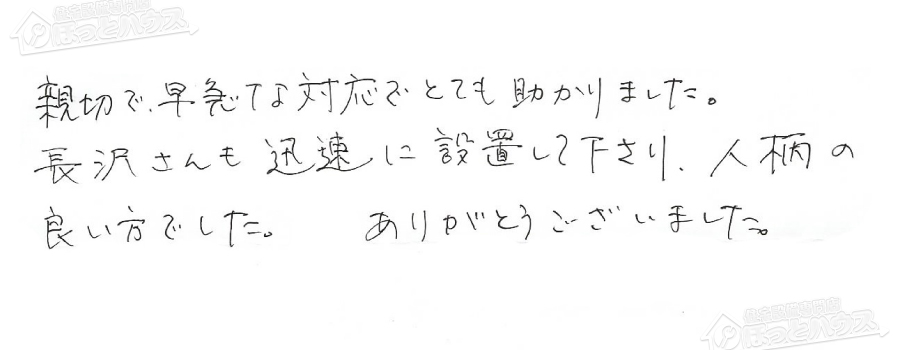 住宅設備専門店
ほっとハウス
親切で、早急な対応でとても助かりました。
長沢さんも迅速に設置して下さり、人柄の
良い方でした。 ありがとうございました。
住宅設備専門店
ほっとハウス